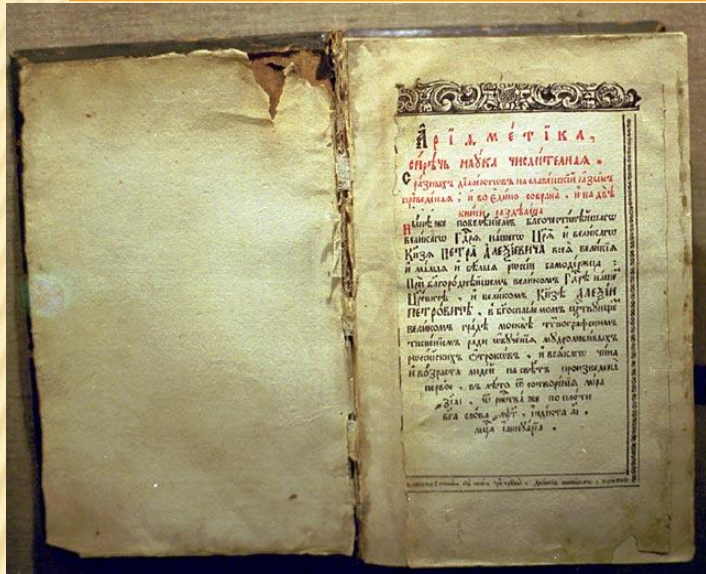 Арїѳме́тїка,
си́рѣчь наꙋ́ка числи́телная.
С ра́зныхъ дїале́ктѡвъ на славе́нскїй ꙗ҆зы́къ
преведе́ная, и҆ во є҆ди́но собрана̀, и҆ на двѣ̀
кни́ги раздѣлена̀
Ны́нѣ же повелѣ́нїемъ благочести́вѣйшагѡ
вели́кагѡ Гдⷭ҇рѧ на́шегѡ Цр҃ѧ̀ и҆ вели́кагѡ
Кн҃зѧ ПЕТРА̀ А҆ЛЕѮІ́ЕВИЧА всеѧ̀ вели́кїѧ
и҆ ма́лыѧ и҆ бѣ́лыѧ рѡссі́и самоде́ржца:
Прѝ благоро́днѣйшемъ вели́комъ Гдⷭ҇рѣ на́шемъ
Цр҃е́вичѣ, и҆ вели́комъ Кн҃зѣ А҆ЛЕѮІ́И
ПЕТРО́ВИЧѢ, в бг҃оспаса́емомъ ца́рствꙋющемъ
вели́комъ гра́дѣ москвѣ̀ тѷпогра́фскимъ
тисне́нїемъ ра́ди ѡ҆бꙋче́нїѧ мꙋдролюби́выхъ
рѡссі́йскихъ ѻ҆́трокѡвъ, и҆ всѧ́кагѡ чи́на
и҆ во́зраста люде́й на свѣ́тъ произведена̀
пе́рвое, въ лѣ́то ѿ сотворе́нїѧ мі́ра
҂зсаі, ѿ рождества̀ же по пло́ти
бг҃а сло́ва ҂аѱг, і҆ндї́кта аі,
мцⷭ҇а і҆аннꙋа́рїа.